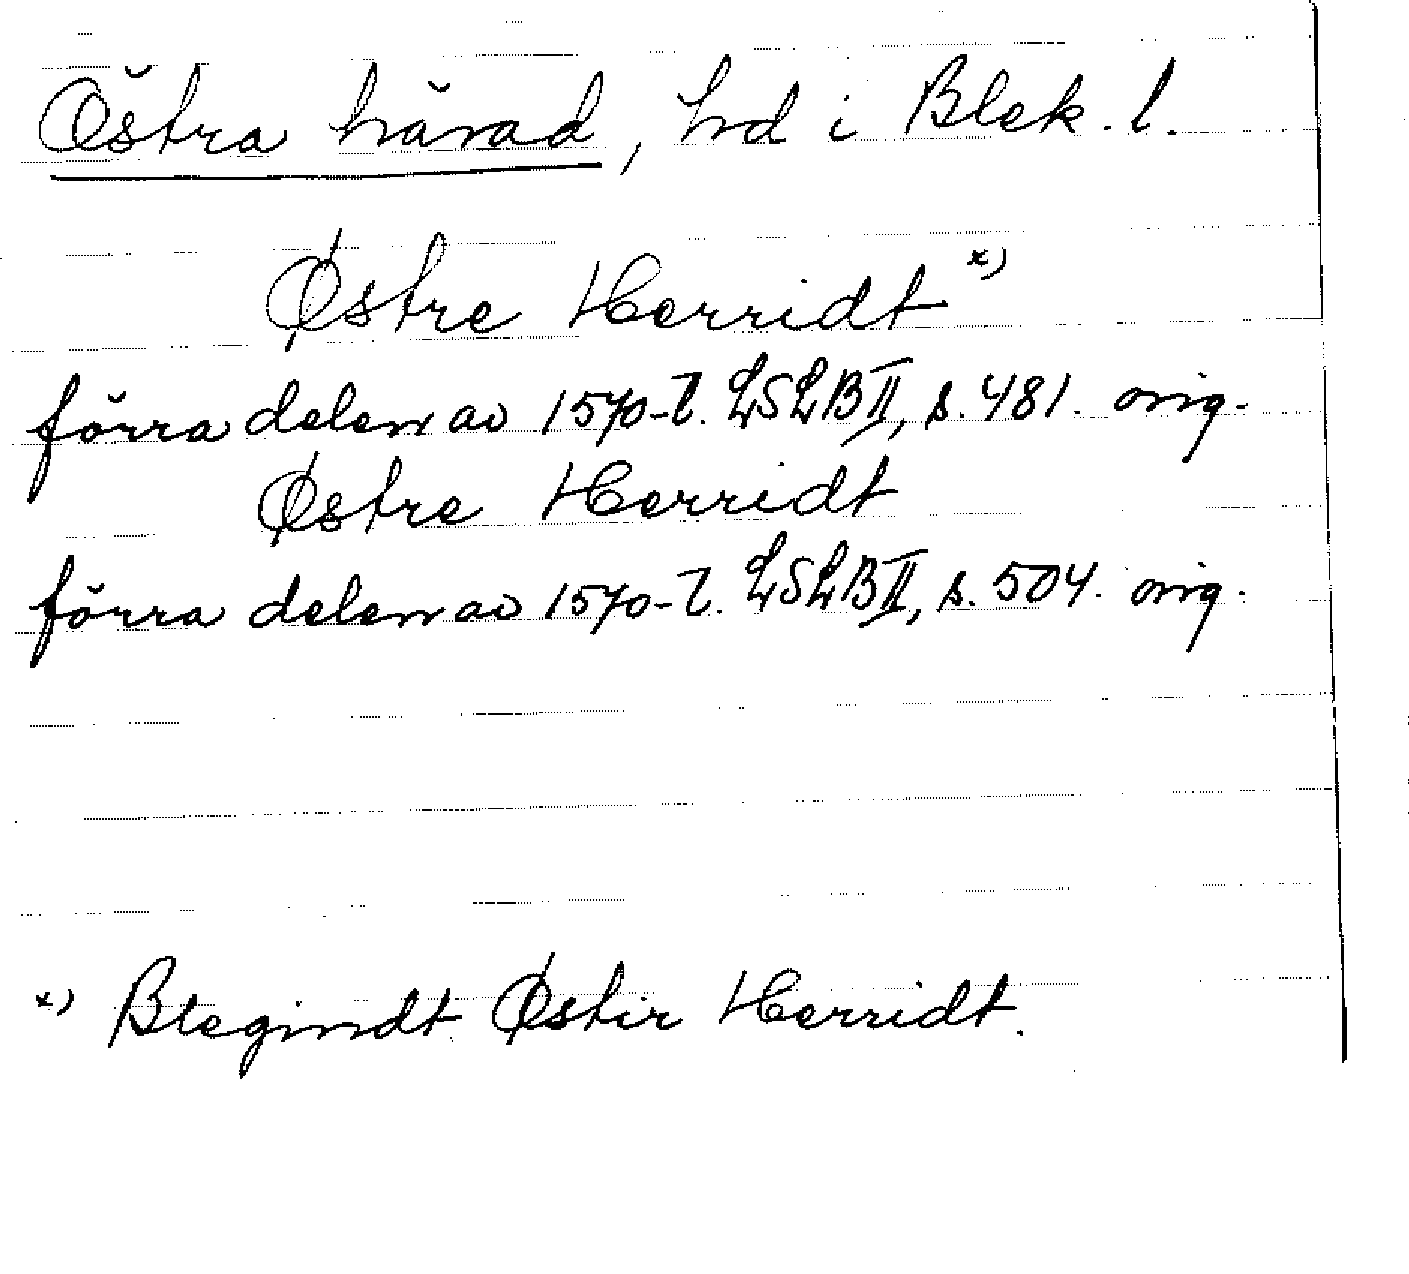 Östra härad, hd i Blek. l.
Østre Herridt x)
förra delen av 1570-t. LSLB II, s. 481. orig.
Østre Herridt
förra delen av 1570-t. LSLB II, s. 504. orig.
x) Blegindt Østir Herridt.